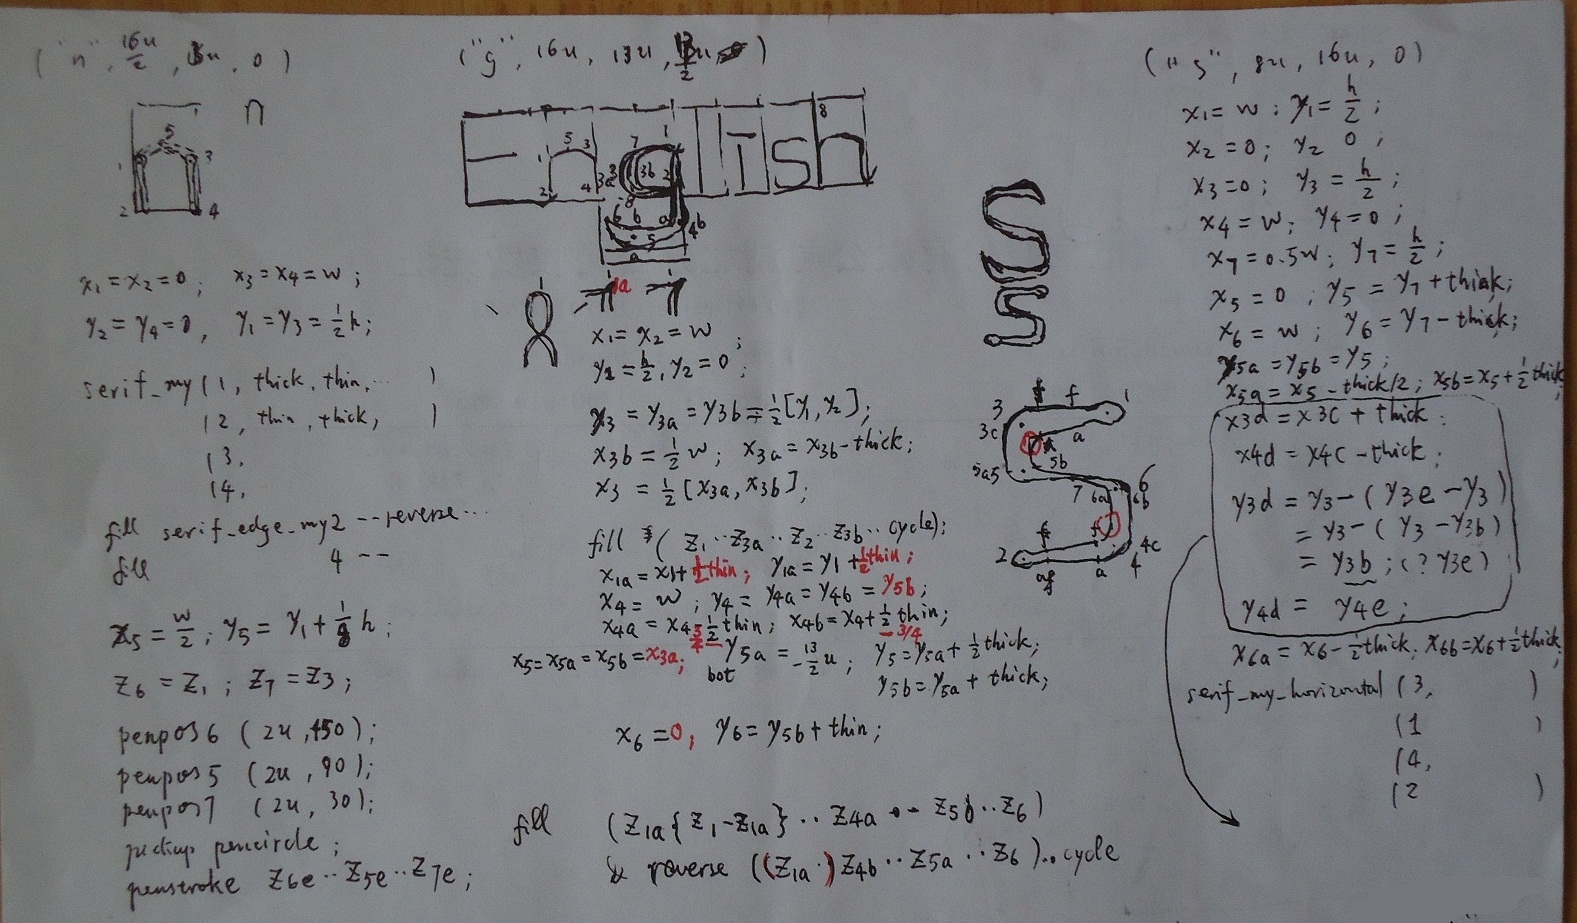 ("n", 16u/2, u, 0)
n
5
1 3
2 4
x1 = x2 = 0; x3 = x4 = w;
y2 = y4 = 0, y1 = y3 = 1/2 h;
serif_my (1, thick, thin, ... )
(2, thin, thick, )
(3.
(4,
fill serif_edge_my2 -- reverse...
fill 4 --
x5 = w/2; y5 = y1 + 1/8 h;
z6 = z1; z7 = z3;
penpos6 (2u, 150);
penpos5 (2u, 90);
penpos7 (2u, 30);
pickup pencircle;
penstroke z6e..z5e..z7e;
("g", 16u, 13u, 13/2 u)
5 7 1 8
1 3 3a 3 3b 2
2 4 8
6 b a 4b
5
a
1a
x1 = x2 = w;
y1 = h/2, y2 = 0;
y3 = y3a = y3b = 1/2 [y1, y2];
x3b = 1/2 w; x3a = x3b - thick;
x3 = 1/2 [x3a, x3b];
fill (z1..z3a..z2..z3b..cycle);
x1a = x1 + 1/2 thin; y1a = y1 + 1/2 thin;
x4 = w; y4 = y4a = y4b = y5b;
x4a = x4 - 1/2 thin; x4b = x4 + 1/2 thin;
3/4 - 3/4
x5 = x5a = x5b = x3a; y5a = -13/2 u; y5 = y5a + 1/2 thick;
bot y5b = y5a + thick;
x6 = 0, y6 = y5b + thin;
fill (z1a{z1-z1a}..z4a..z5b..z6)
& reverse ((z1a.)z4b..z5a..z6)..cycle
S
S
3 f 1
3c a
5a 5 5b
7 6a 6 6b
2 f 4c
a 4
("s", 8u, 16u, 0)
x1 = w; y1 = h/2;
x2 = 0; y2 0;
x3 = 0; y3 = h/2;
x4 = w; y4 = 0;
x7 = 0.5w; y7 = h/2;
x5 = 0; y5 = y7 + thick;
x6 = w; y6 = y7 - thick;
y5a = y5b = y5;
x5a = x5 - thick/2; x5b = x5 + 1/2 thick
x3d = x3c + thick;
x4d = x4c - thick;
y3d = y3 - (y3e - y3)
= y3 - (y3 - y3b)
= y3b; (? y3e)
y4d = y4e;
x6a = x6 - 1/2 thick; x6b = x6 + 1/2 thick;
serif_my_horizontal (3, )
(1 )
(4,
(2 )